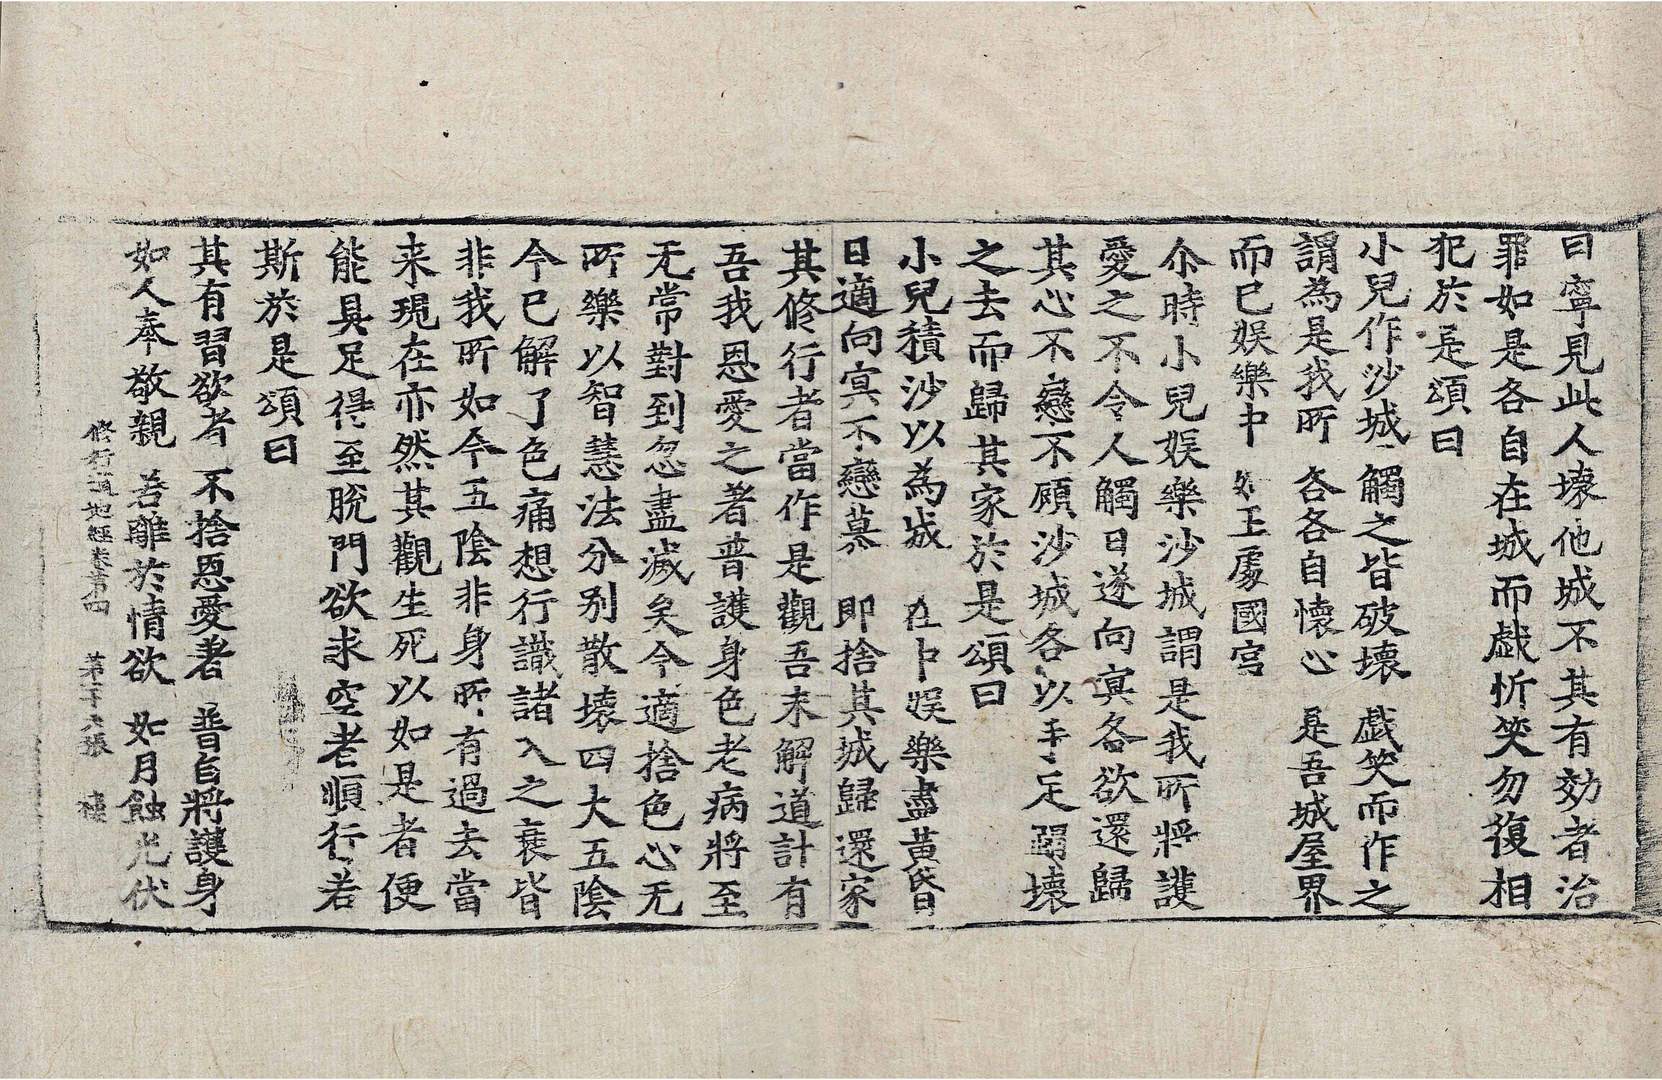 曰寧見此人壞他城不其有効者治
罪如是各自在城而戱忻笑勿復相
犯於是頌曰
小兒作沙城　觸之皆破壞　戱笑而作之
謂為是我所　各各自懷心　是吾城屋界
而已娛樂中　如王處國宮
尒時小兒娛樂沙城謂是我所將護
愛之不令人觸日遂向㝠各欲還歸
其心不戀不顧沙城各以手足蹋壞
之去而歸其家於是頌曰
小兒積沙以為城　在中娛樂盡黃昏
日適向㝠不戀慕　即捨其城歸還家
其修行者當作是觀吾未解道計有
吾我恩愛之著普護身色老病將至
无常對到忽盡滅矣今適捨色心无
所樂以智慧法分别散壞四大五陰
今已解了色痛想行識諸入之衰皆
非我所如今五陰非身所有過去當
来現在亦然其觀生死以如是者便
能具足得至脫門欲求空老順行若
斯於是頌曰
其有習欲者　不捨恩愛著　普自將護身
如人奉敬親　若離於情欲　如月蝕光伏
修行道地經卷第四　第二十六張　樓